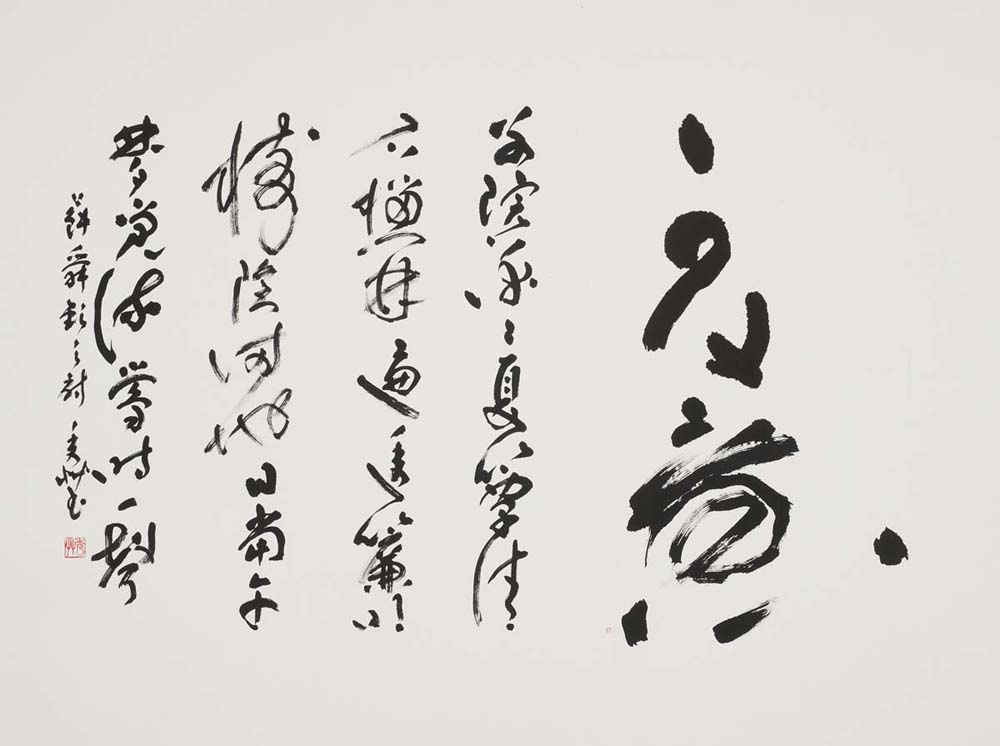 夏意
別院深深夏簟清
石榴開遍透簾明
樹陰滿地日當午
夢覺流鶯時一聲
蘇舜欽之詩